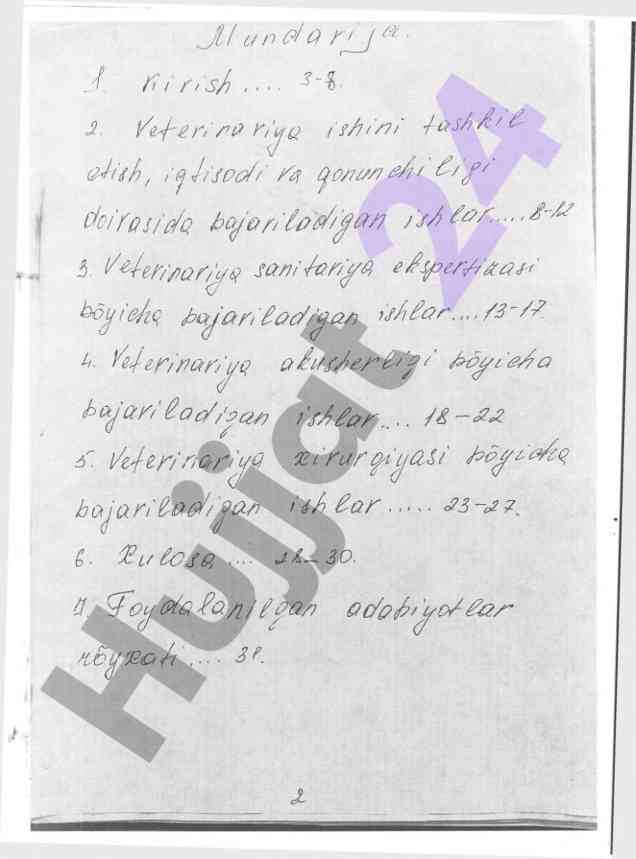 Mundarija.
1. Kirish .... 3-8.
2. Veterinariya ishini tashkil
etish, iqtisodi va qonunchiligi
doirasida bajariladigan ishlar.... 8-12
3. Veterinariya sanitariya ekspertizasi
bōyicha bajariladigan ishlar.... 13-17
4. Veterinariya akusherligi bōyicha
bajariladigan ishlar.... 18-22
5. Veterinariya xirurgiyasi bōyicha
bajariladigan ishlar..... 23-27.
6. Xulosa .... 28-30.
7 Foydalanilgan adabiyotlar
rōyxati .... 31.
2
Hujjat 24